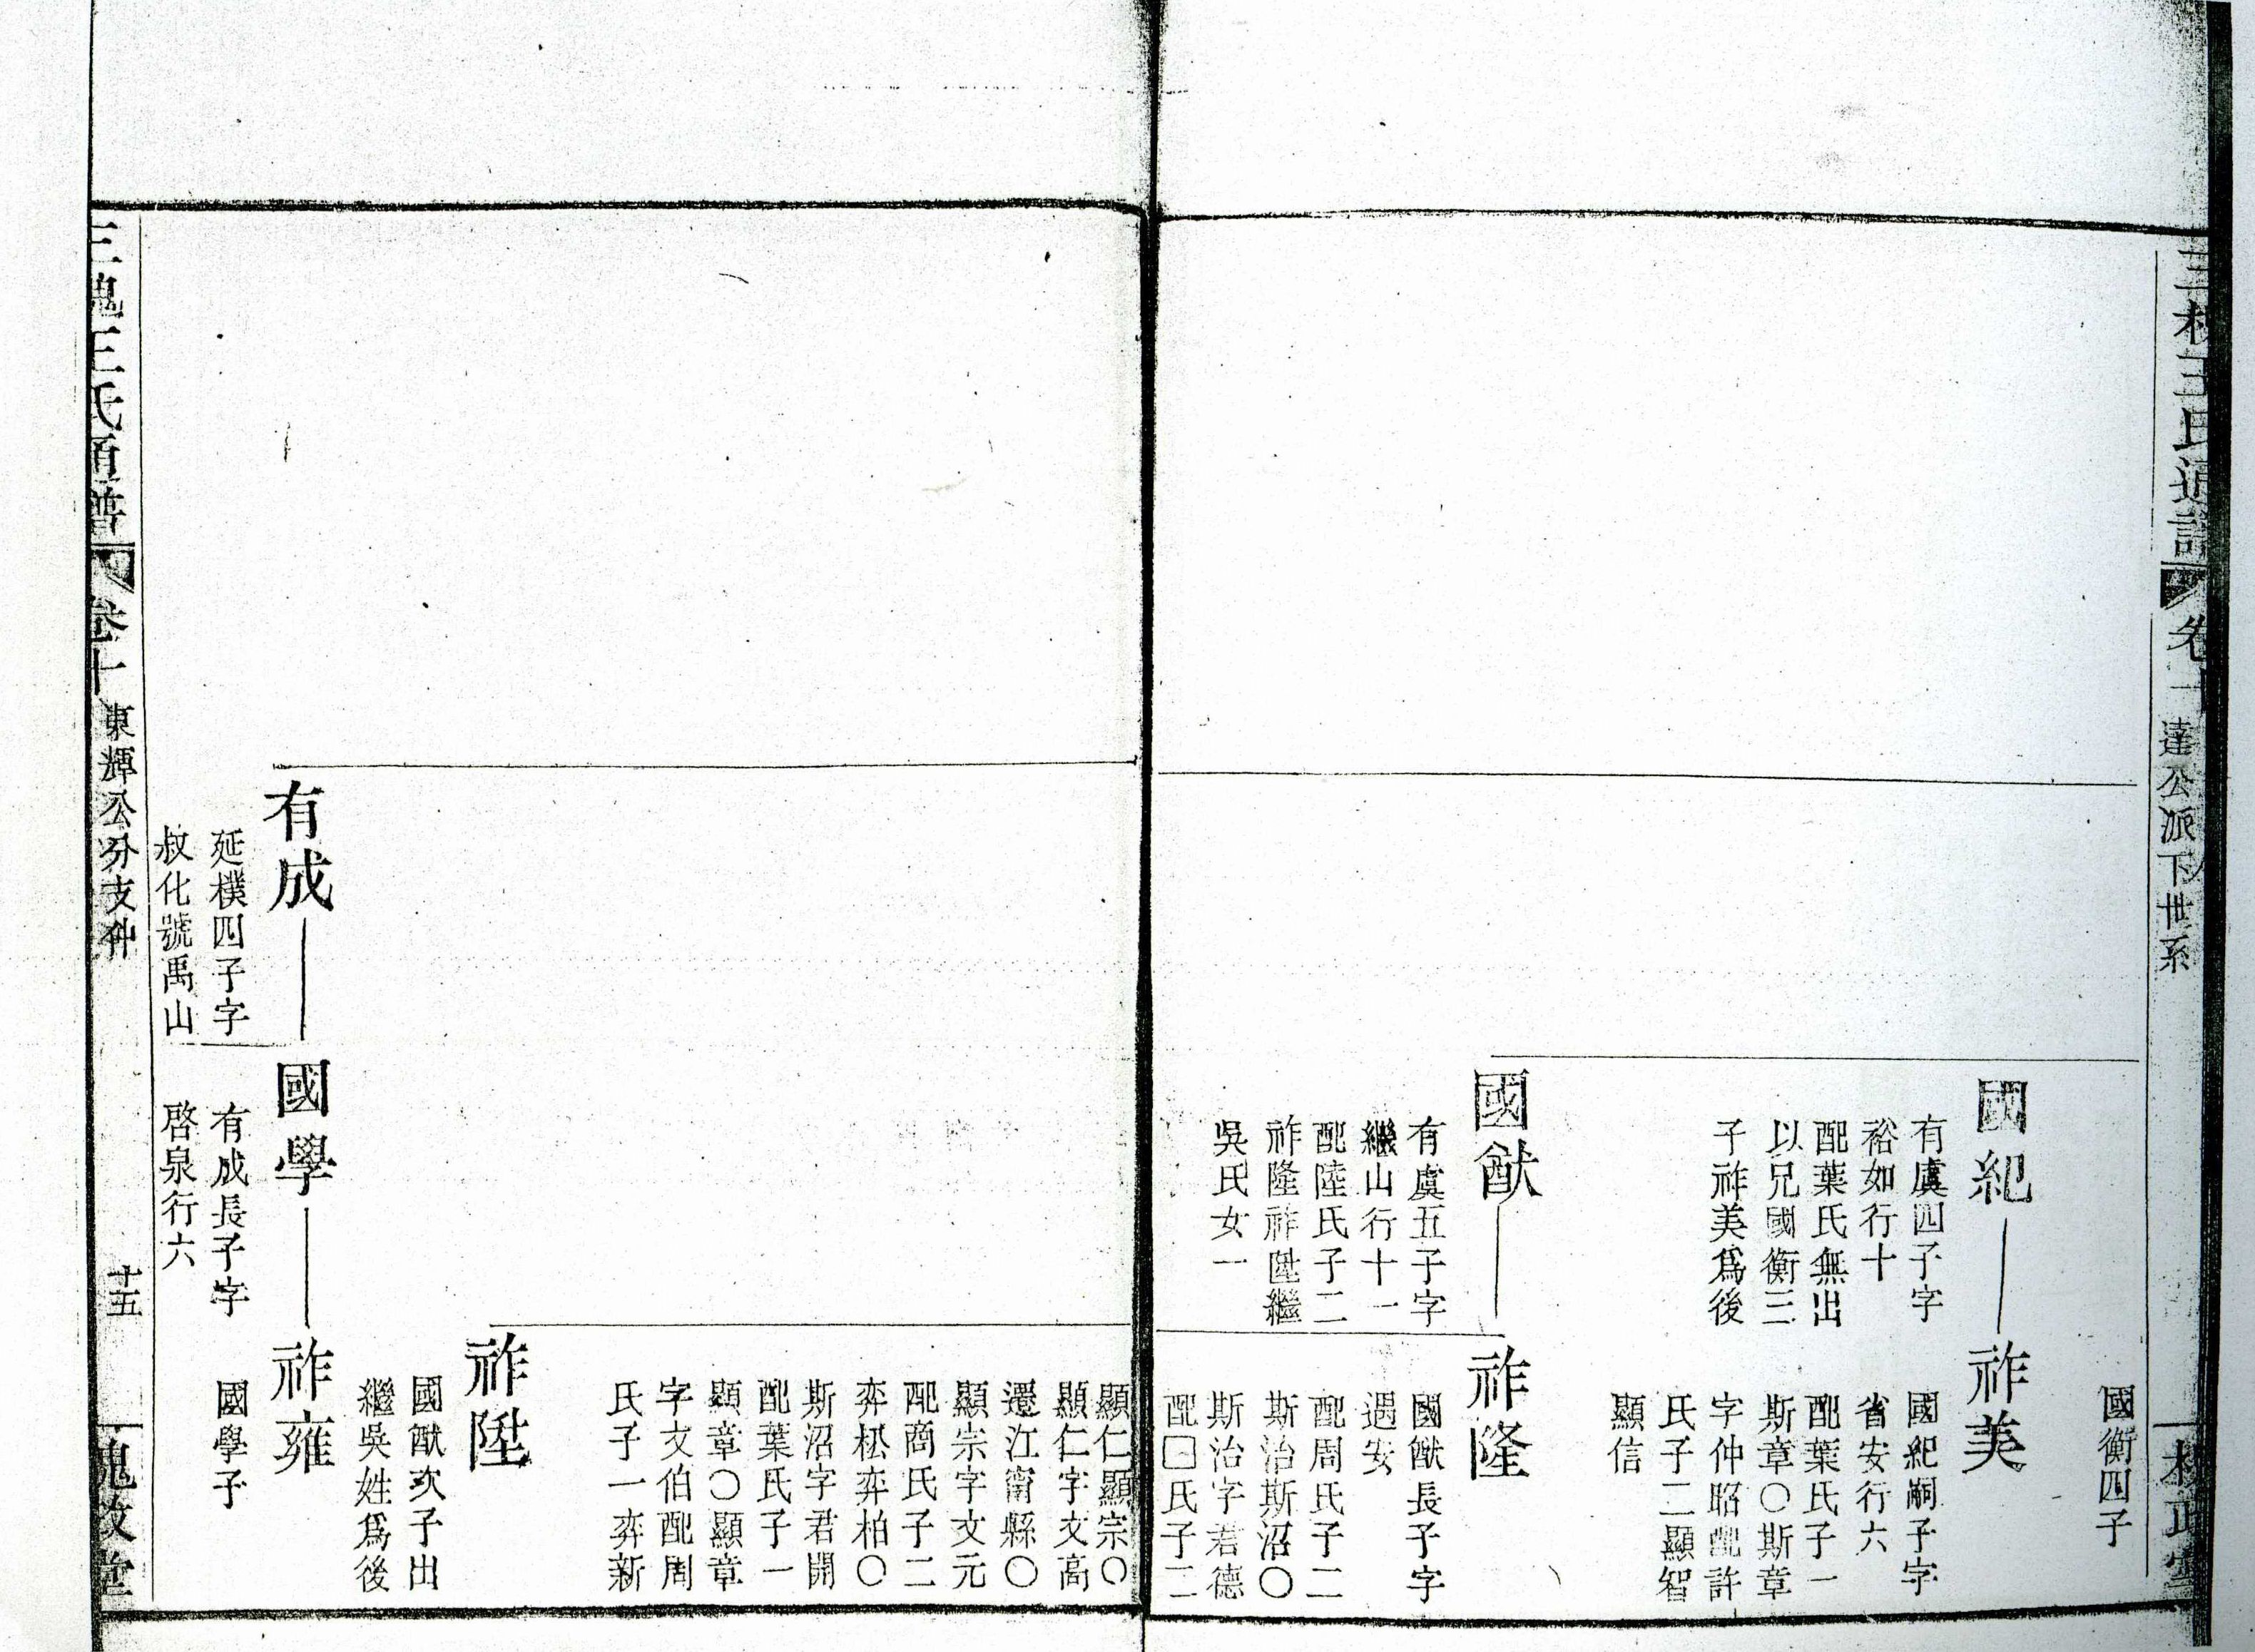 三槐王氏通譜
卷十
達公派下世系
槐政堂
國衡四子
國紀
有虞四子字
裕如行十
配葉氏無出
以兄國衡三
子祚美爲後
祚美
國紀嗣子字
省安行六
配葉氏子一
斯章〇斯章
字仲昭配許
氏子二顯智
顯信
國猷
有虞五子字
繼山行十一
配陸氏子二
祚隆祚陞繼
吳氏女一
祚隆
國猷長子字
遇安
配周氏子二
斯治斯沼〇
斯治字君德
配□氏子二
顯仁顯宗〇
顯仁字文高
遷江甯縣〇
顯宗字文元
配商氏子二
弈松弈柏〇
斯沼字君開
配葉氏子一
顯章〇顯章
字文伯配周
氏子一弈新
祚陞
國猷次子出
繼吳姓爲後
有成
延樸四子字
叔化號禹山
國學
有成長子字
啓泉行六
祚雍
國學子
三槐王氏通譜
卷十
東輝公分支仲
十五
槐政堂